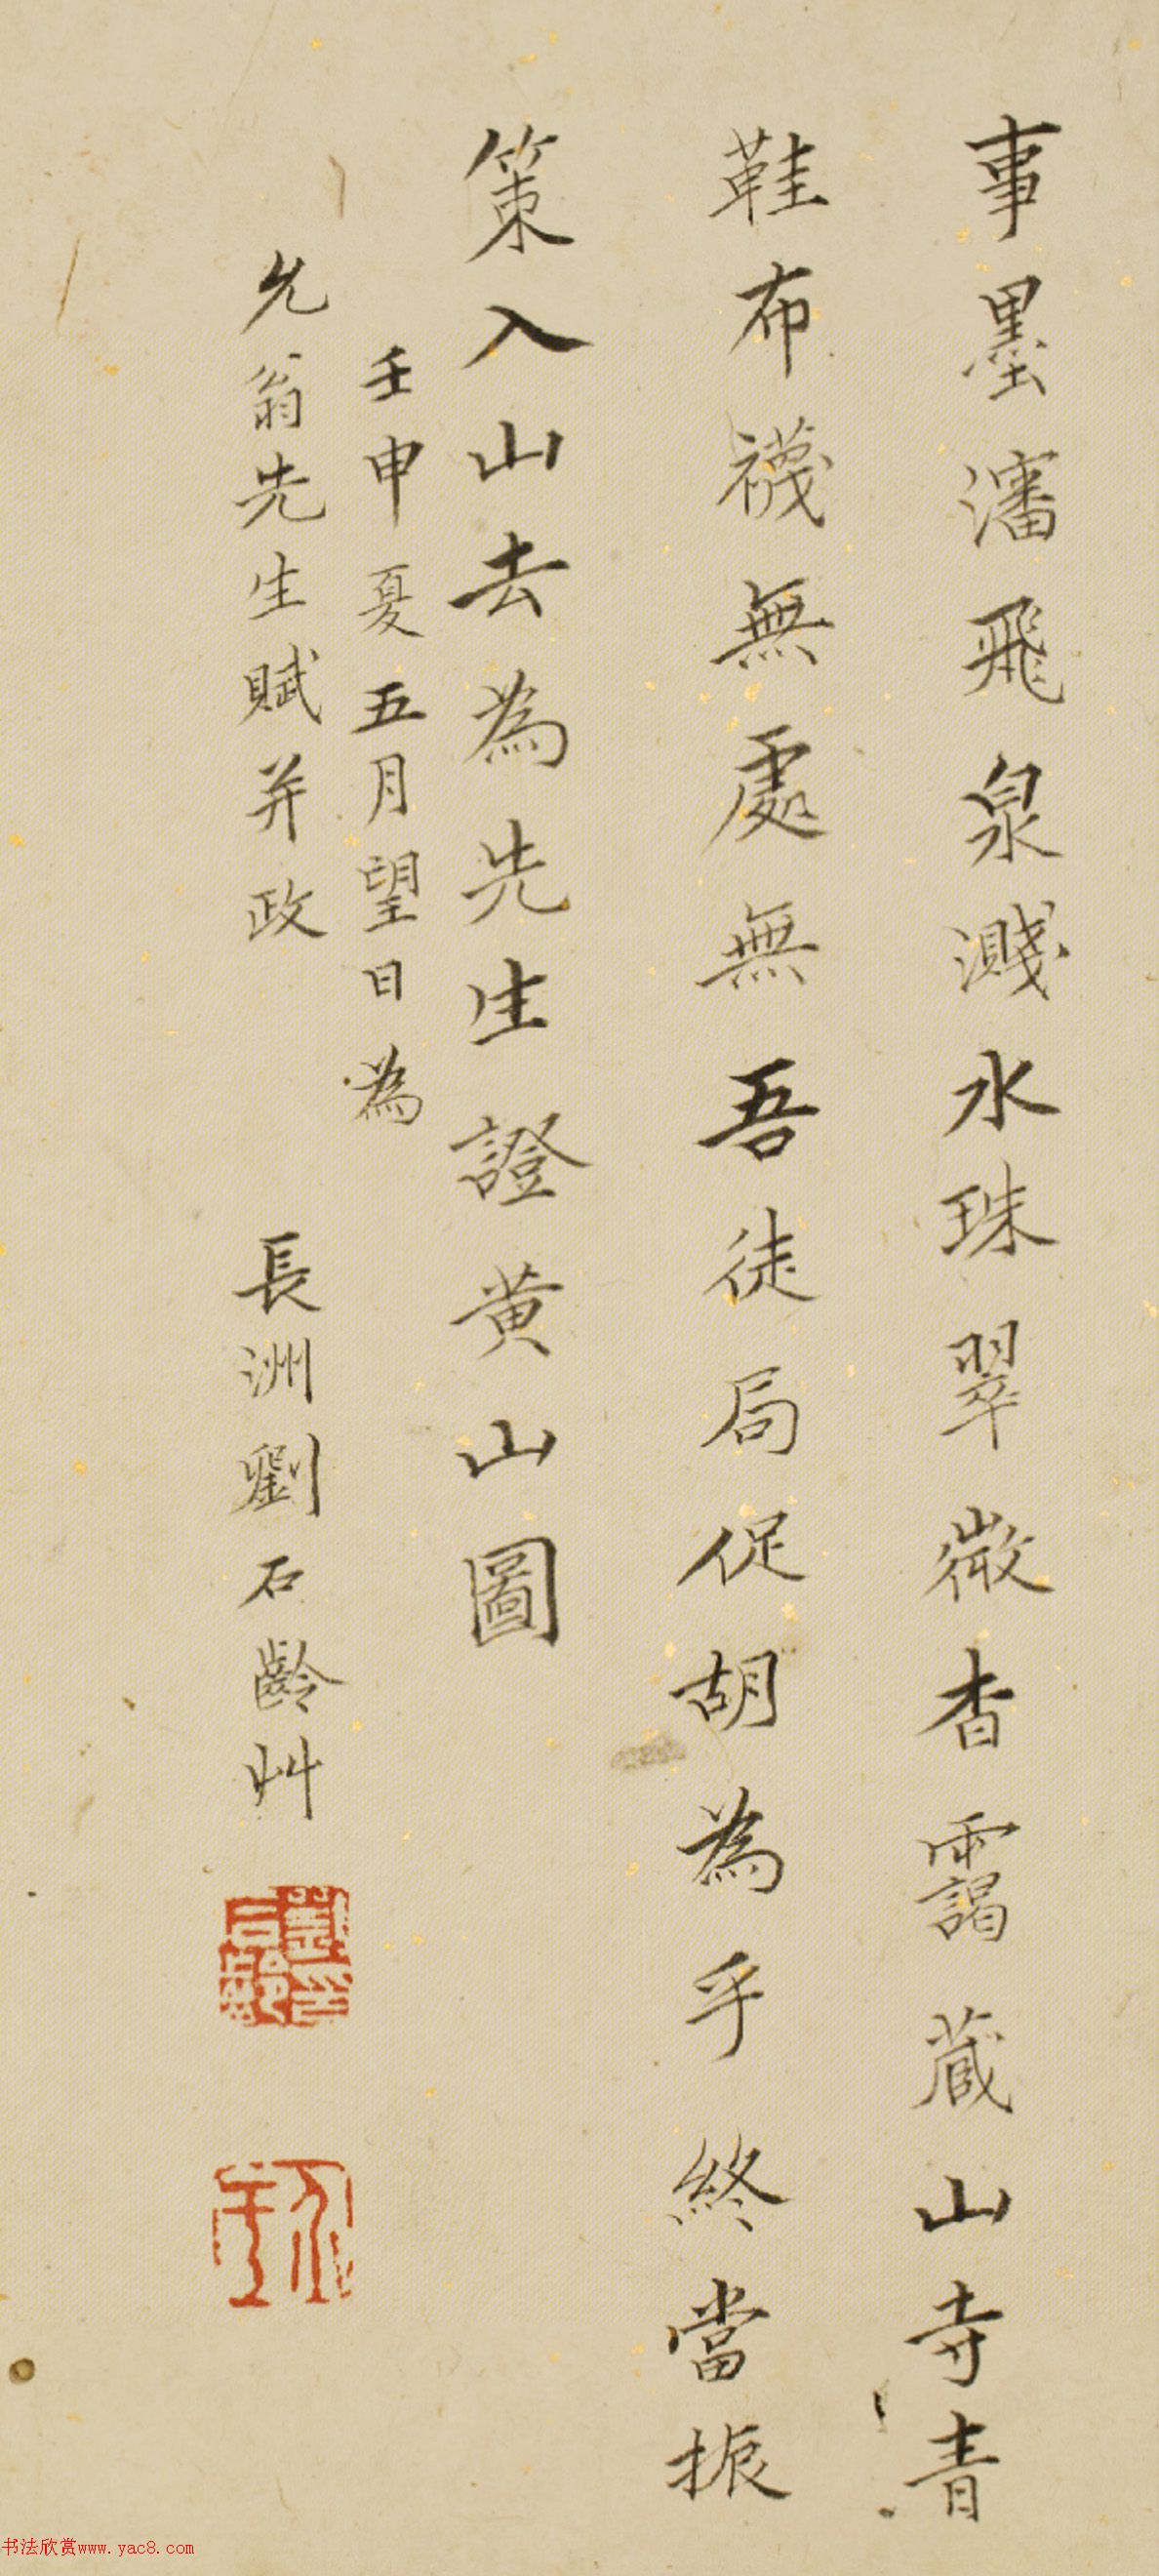 事墨瀋飛泉濺水珠翠微杳靄藏山寺青
鞋布襪無處無吾徒局促胡為乎終當振
策入山去為先生證黄山圖
壬申夏五月望日為
允翁先生賦并政
長洲劉石齡艸
书法欣赏www.yac8.com